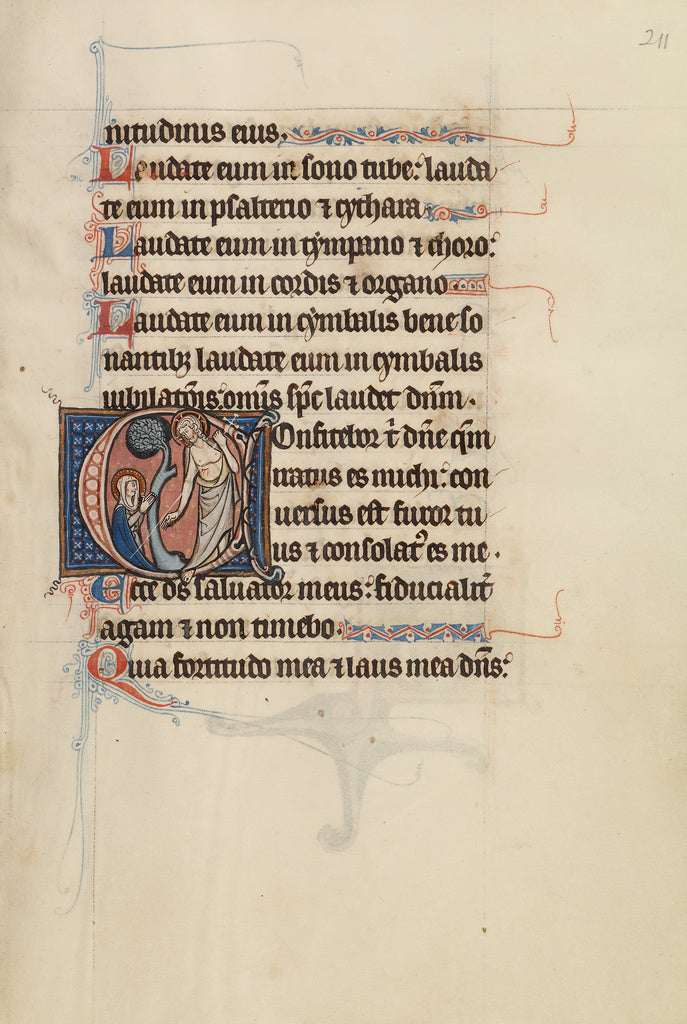 211
nitudinis eius.
Laudate eum in sono tube: lauda
te eum in psalterio ⁊ cythara
Laudate eum in tympano ⁊ choro:
laudate eum in cordis ⁊ organo.
Laudate eum in cymbalis bene so
nantibꝫ laudate eum in cymbalis
iubilatõis: om̃is sp̃c laudet dñm.
Confitebor t̃ dñe qm̃
iratus es michi: con
uersus est furor tu
us ⁊ consolat᷒ es me.
Ecce ds̃ saluator meus: fiducialit̃
agam ⁊ non timebo.
Quia fortitudo mea ⁊ laus mea dñs: